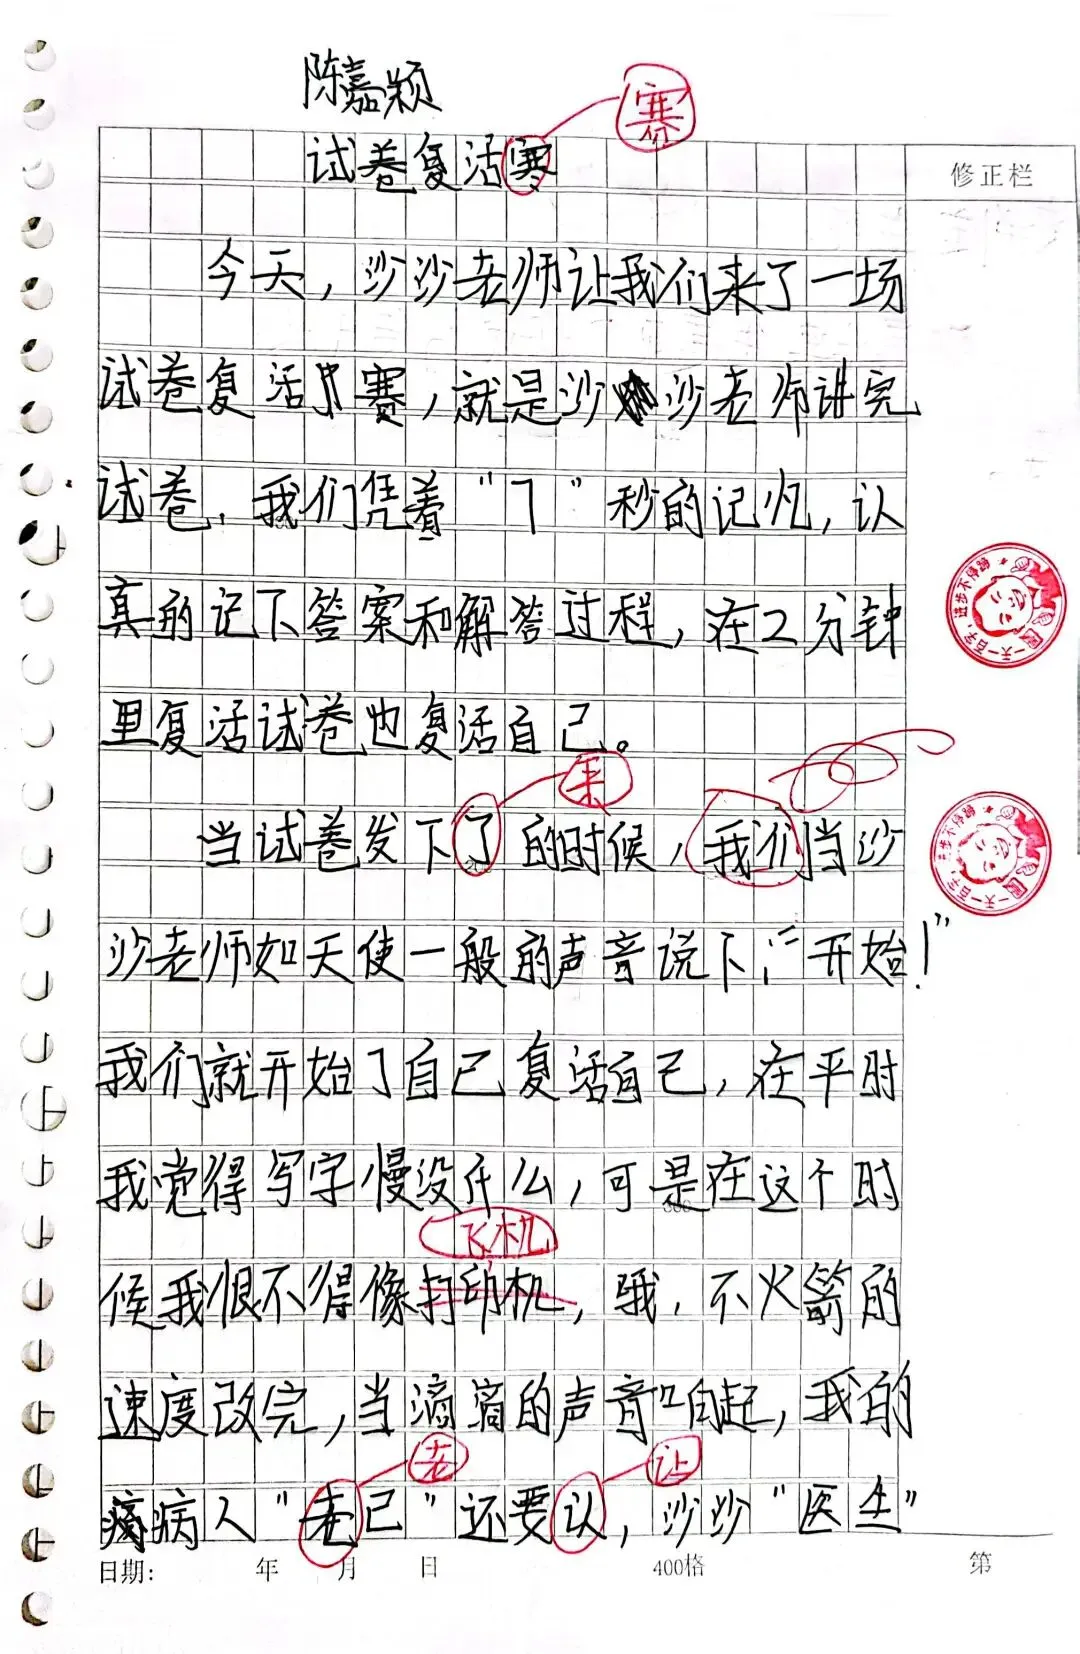 陈嘉颖
赛
试卷复活寒
修正栏
今天，沙沙老师让我们来了一场
试卷复活赛，就是沙沙老师讲完
试卷，我们凭着“7”秒的记忆，认
真的记下答案和解答过程，在2分钟
里复活试卷也复活自己。
来
当试卷发下了的时候，我们当沙
沙老师如天使一般的声音说下：“开始！”
我们就开始了自己复活自己，在平时
我觉得写字慢没什么，可是在这个时
飞机
候我恨不得像打印机，哦，不火箭的
速度改完，当滴滴的声音响起，我的
老 让
病人“卷己”还要认，沙沙“医生”
日期： 年 月 日 400格 第
进步不停蹄 一天一百字
一天一百字